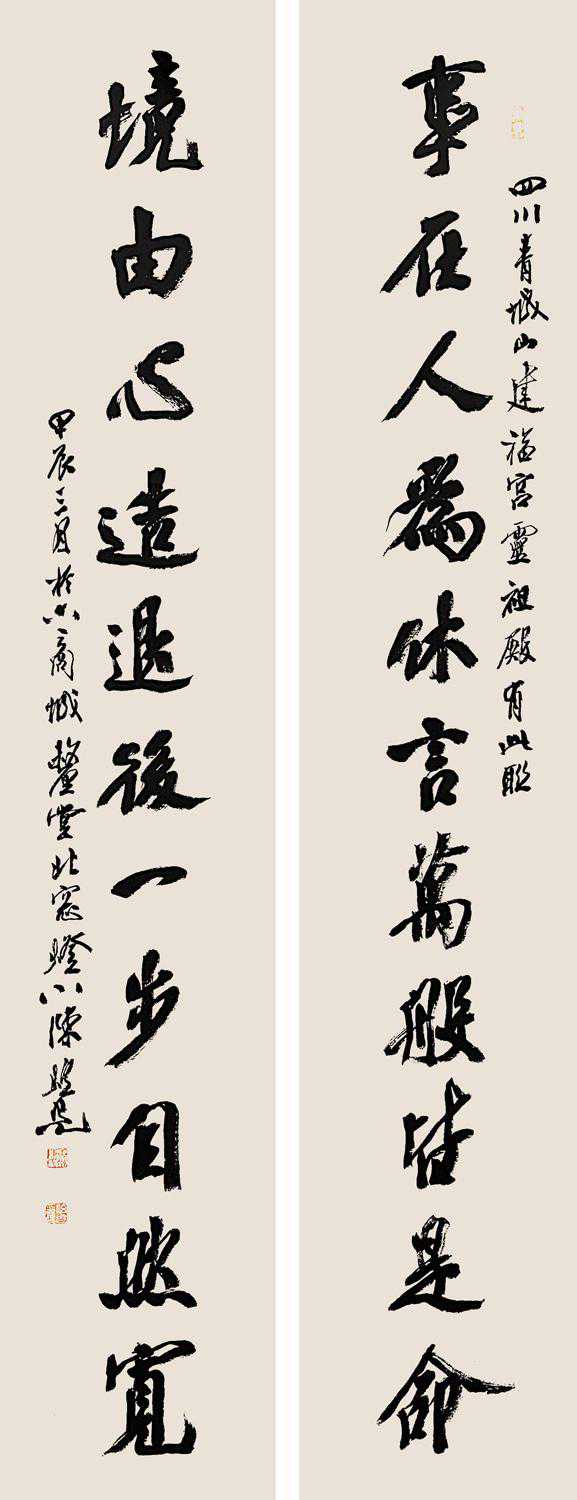 四川青城山建福宮靈祖殿有此聯
事在人為休言萬般皆是命
境由心造退後一步自然寬
甲辰三月於商城堂北窗燈下陳